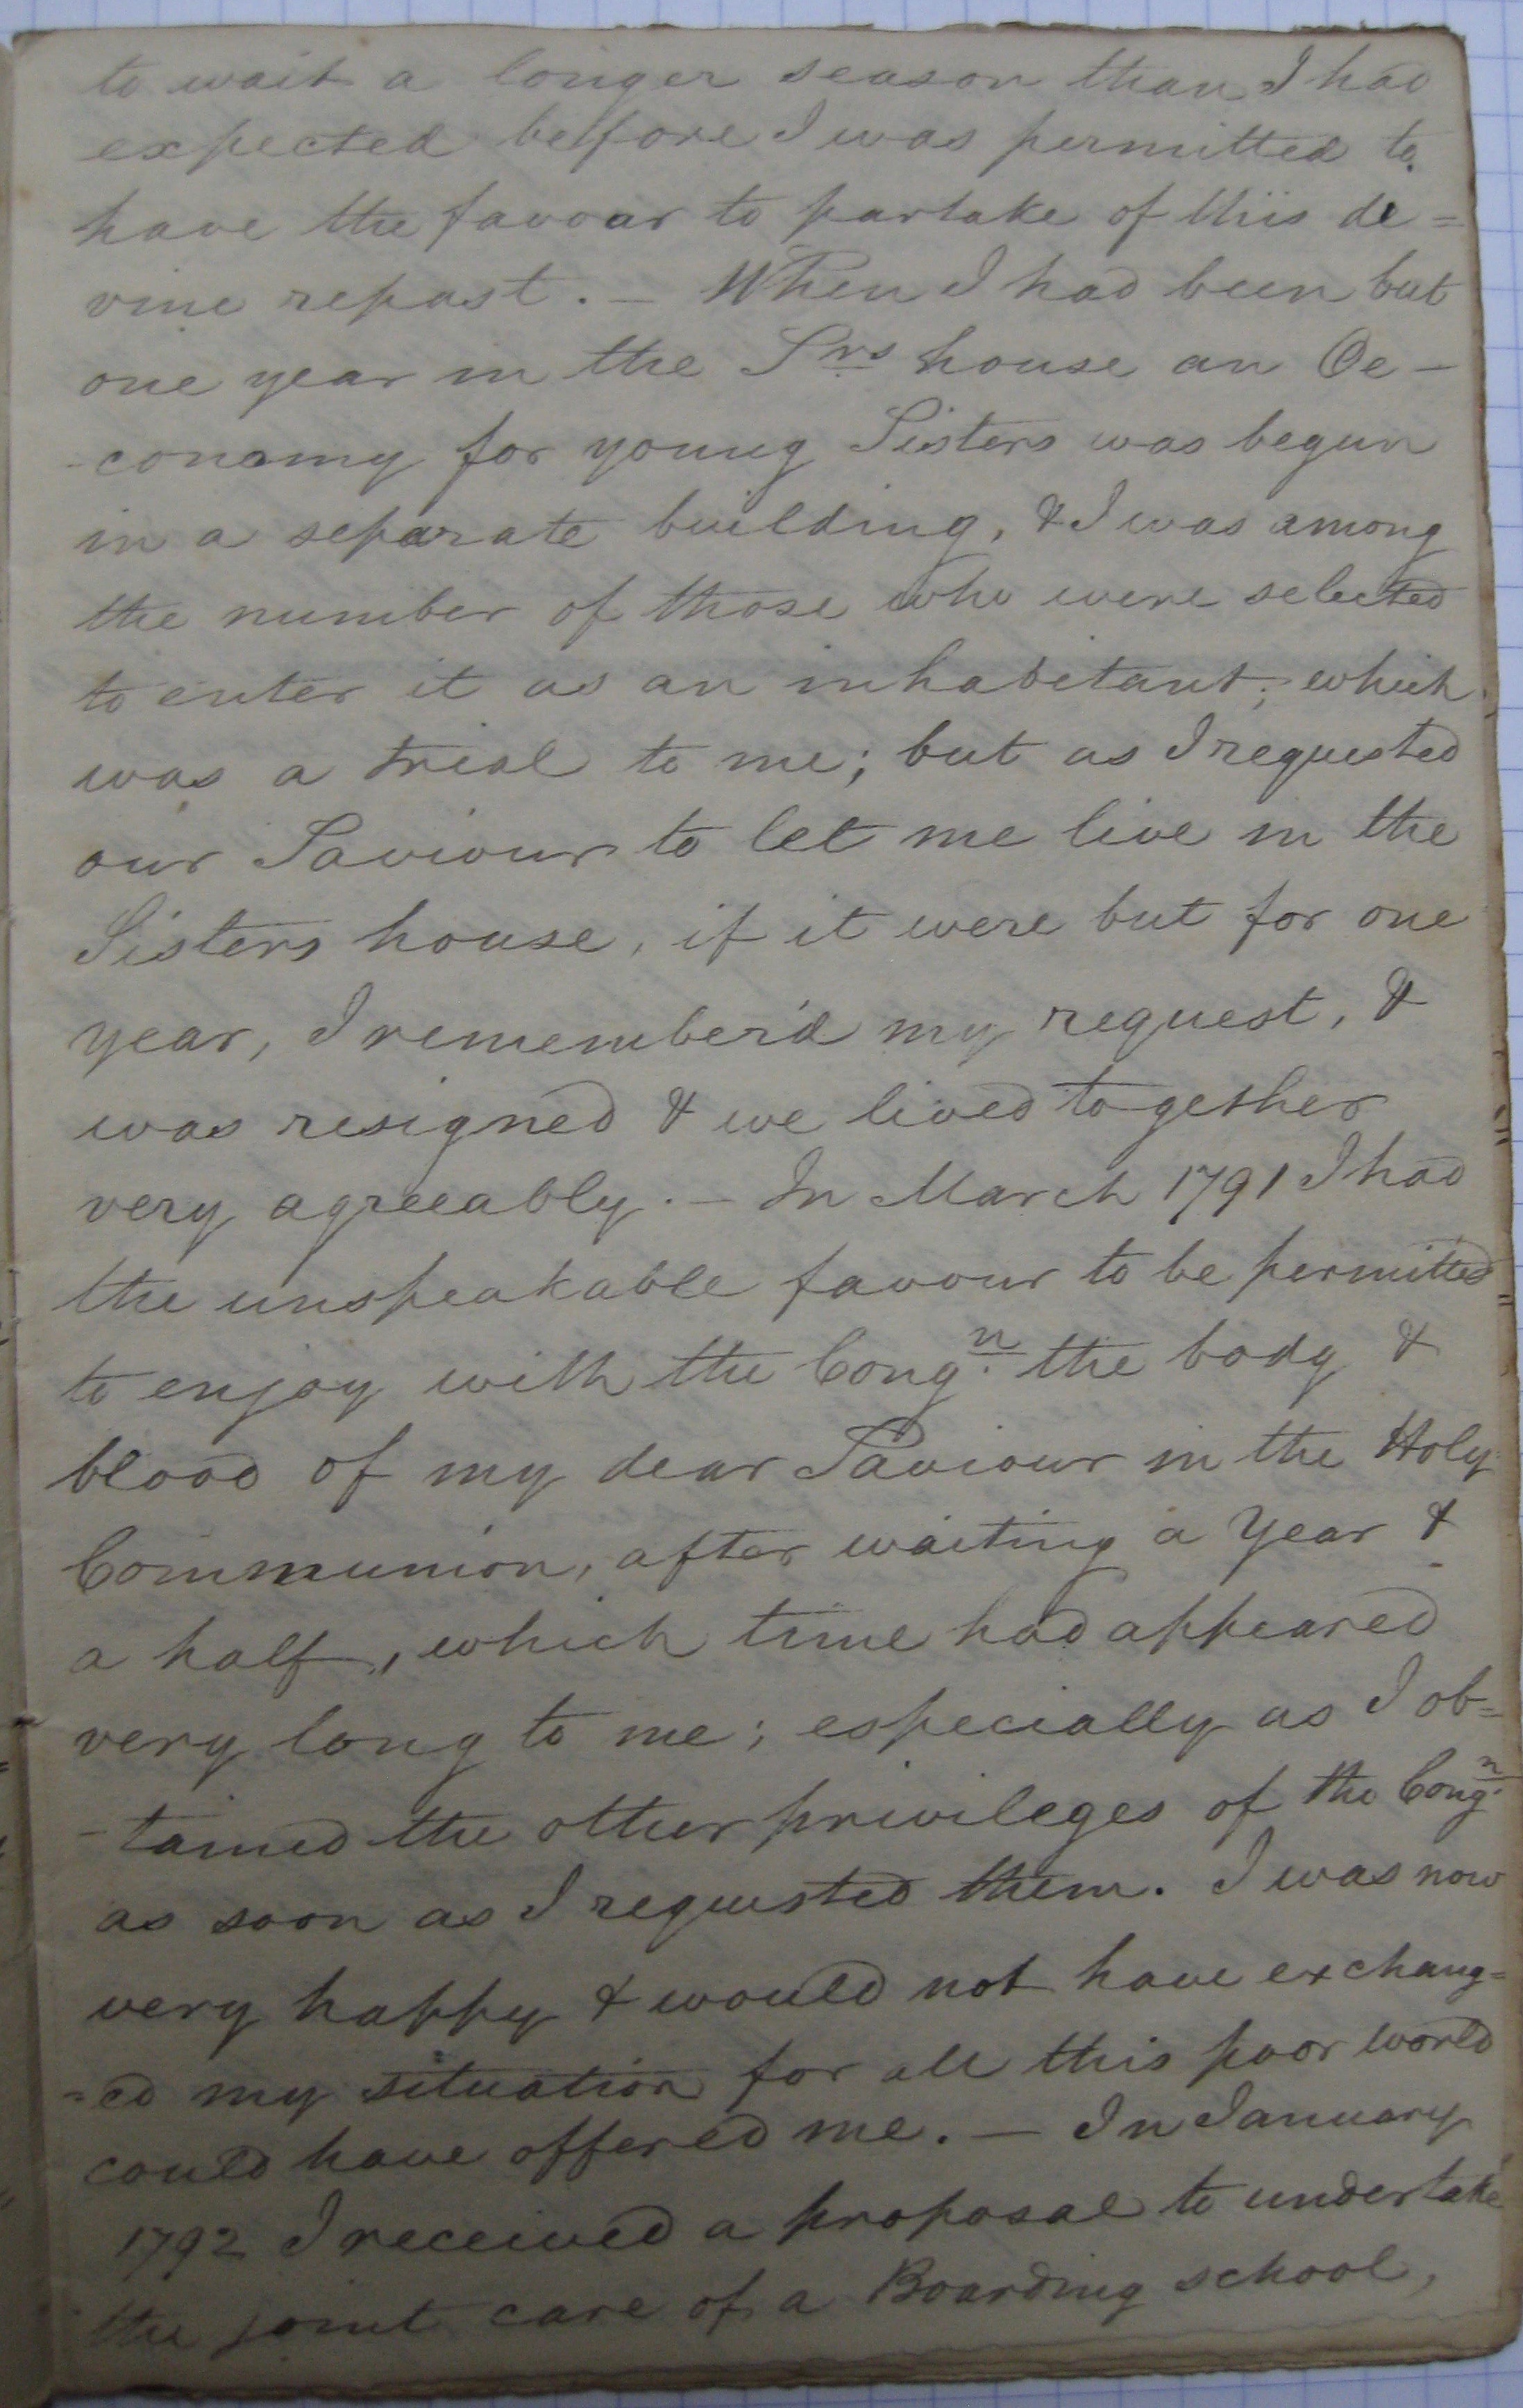 to wait a longer season than I had
expected before I was permitted to
have the favour to partake of this de=
vine repast. – When I had been but
one year in the Srs house an Oe-
-conomy for young Sisters was begun
in a separate building, & I was among
the number of those who were selected
to enter it as an inhabitant; which
was a trial to me; but as I requested
our Saviour to let me live in the
Sisters house, if it were but for one
year, I remember'd my request, &
was resigned & we lived together
very agreeably. – In March 1791 I had
the unspeakable favour to be permitted
to enjoy with the Congn. the body &
blood of my dear Saviour in the Holy
Communion, after waiting a Year &
a half, which time had appeared
very long to me; especially as I ob=
-tained the other privileges of the Congn.
as soon as I requested them. I was now
very happy & would not have exchang=
=ed my situation for all this poor world
could have offered me. – In January
1792 I received a proposal to undertake
the joint care of a Boarding school,